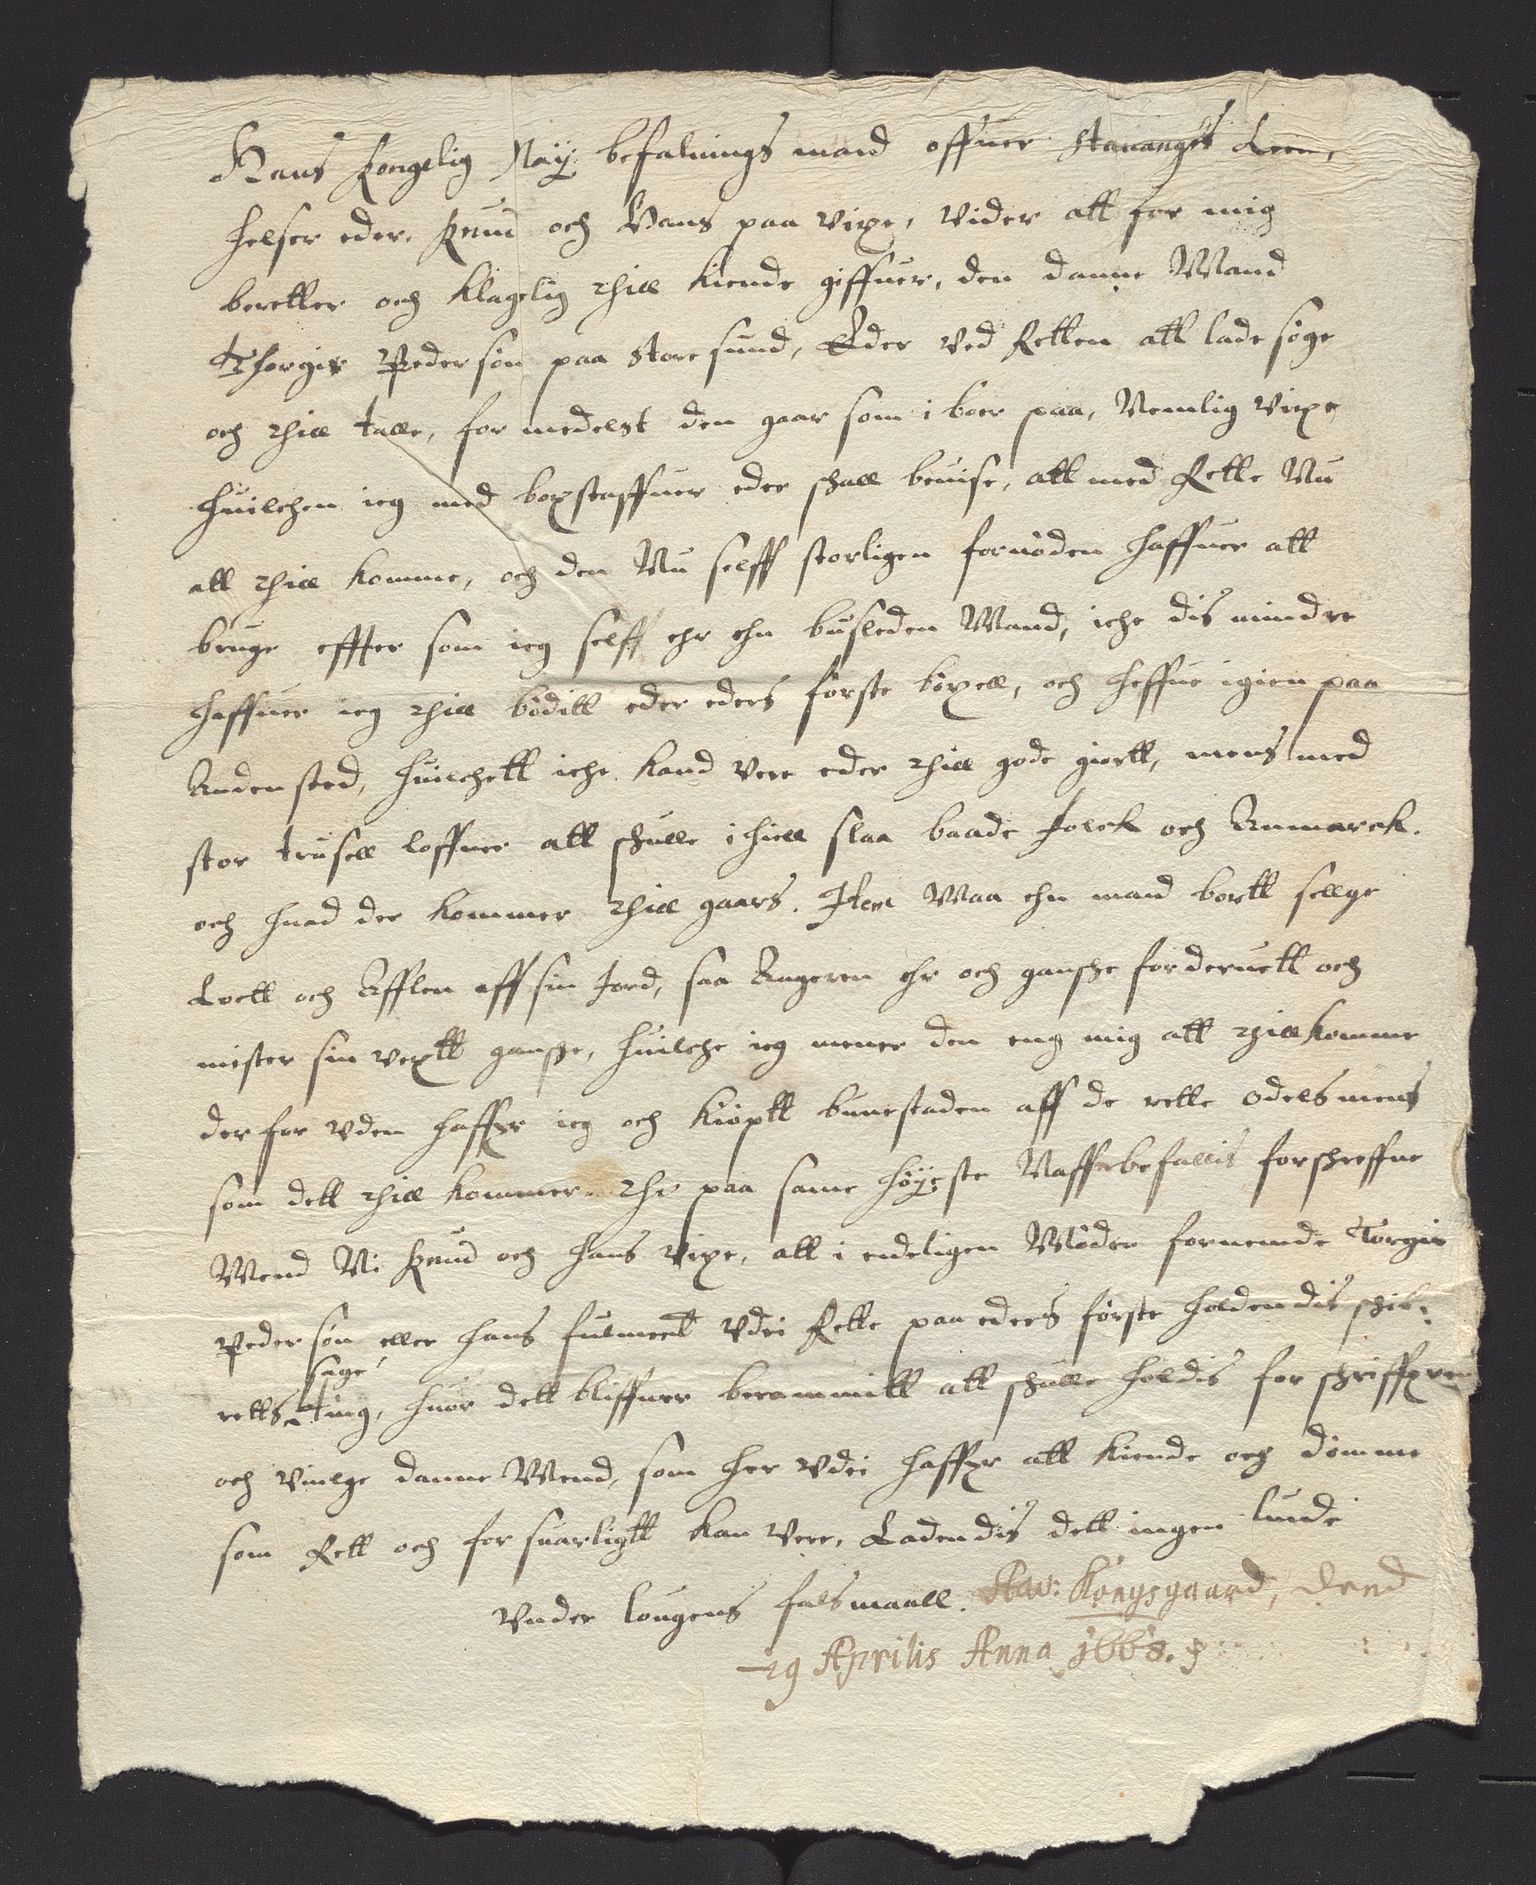 Hans Kongelig May: befalnings mand offuer Stauangers Leen,
helser eder, Knud och Hans paa Vixe, Vider att for mig
beretter och klagelig thill kiende giffuer, den danne Mand
Thorgir Peder sön paa store sund, Eder ved Retten att lade söge
och thill talle, for medelst den gaar som i boer paa, Nemlig Vixe
huilchen ieg med boxstaffuer eder shall beuise, att med Rette Nu
att thill komme, och den Nu selff storligen fornöden haffuer att
bruge effter som ieg selff ehr ehn busleden Mand, iche dis mindre
haffuer ieg thill böditt eder eders förste böxell, och heffue igien paa
Anden sted, huilchett iche kand vere eder thill gode giortt, mens med
stor trusell loffuer att shulle ihiell slaa baade folck och Anmarck.
och huad der kommer thill gaars. Item Maa ehn mand bortt sellge
Loett och Afflen aff sin Jord, saa Angeren ehr och ganshe forderuett och
mister sin vextt ganshe, huilche ieg mener den eng mig att thillkomme
der for vden haffer ieg och kiöptt bunestaden aff de rette odels mens
som dett thill kommer. Thi paa same höyeste Naffn befallis forshreffne
Mend Ni Knud och Hans Vixe, att i endeligen Möder fornemde Torgir
Peder sön eller hans fulmect Vdi Rette paa eders förste holdendis shib:
sage
retts ting, huor dett bliffuer berammitt att shulle holdis for shriffueren
och vuilge danne Mend, som her vdi haffer att kiende och dömme
som Rett och for suarligtt kan vere, Ladendis dett ingen lunde
vnder lougens fals maall. Stav: Kongsgaard, Dend
29 Aprilis Anno 1668.